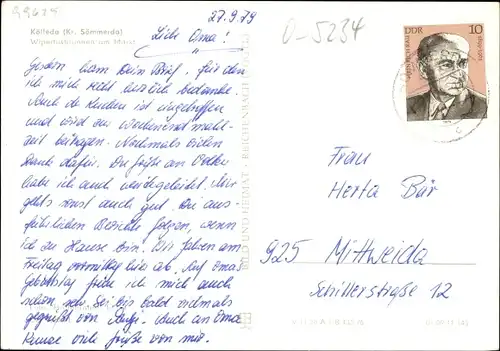 99625
27.9.79
0-5234
Kölleda (Kr. Sömmerda)
Wippertusbrunnen am Markt
Liebe Oma!
Gestern kam Dein Brief, für den
ich mich recht herzlich bedanke.
Auch die Kunden ist eingetroffen
und wird zur Wochenend mahl-
zeit beitragen. Nochmals vielen
Dank dafür. Die Grüße an Volker
habe ich auch weitergeleitet. Mir
geht's sonst auch gut. Die aus-
führlichen Berichte folgen, wenn
ich zu Hause bin. Wir fahren am
Freitag vormittag hier ab. Auf Omas
Geburtstag freue ich mich auch
schon sehr. Sei bis bald vielmals
gegrüßt von
Auch an Oma
viele Grüße von mir.
DDR
10
Frau
Herta Bär
925 Mittweida
Schillerstraße 12
BILD UND HEIMAT REICHENBACH